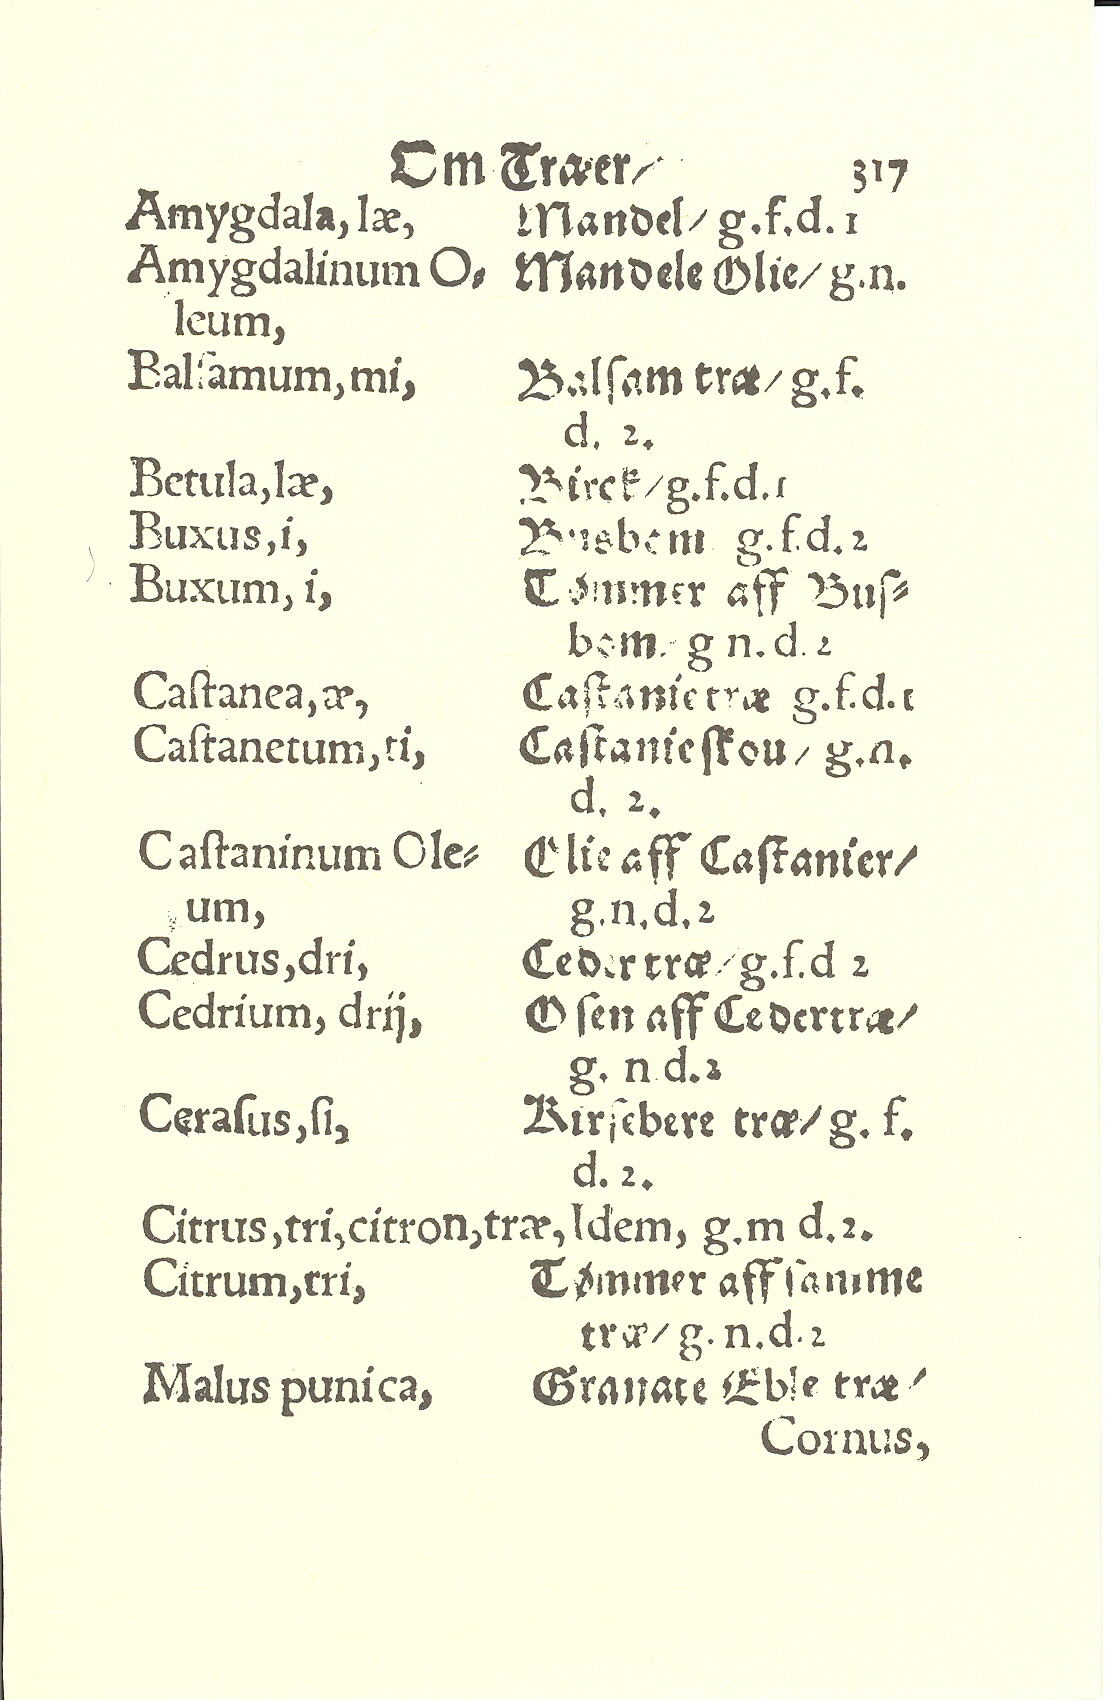 Om Træer/ 317
Amygdala, læ, Mandel/ g.f.d. 1
Amygdalinum O⸗ Mandele Olie/ g.n.
leum,
Balſamum, mi, Balſam træ/ g.f.
d. 2.
Betula, læ, Birck/ g.f.d. 1
Buxus, i, Busbom g.f.d. 2
Buxum, i, Tømmer aff Buſ⸗
bom. g n. d. 2
Caſtanea, æ, Caſtanie træ g.f.d. 1
Caſtanetum, ti, Caſtanieſkou/ g.n.
d. 2.
Caſtaninum Ole⸗ Olie aff Caſtanier/
um, g.n.d. 2
Cedrus, dri, Ceder træ/ g.f.d 2
Cedrium, drij, Oſen aff Cedertræ/
g. n d. 2
Ceraſus, ſi, Kirſebere træ/ g. f.
d. 2.
Citrus, tri, citron, træ, Idem, g.m d. 2.
Citrum, tri, Tømmer aff ſamme
træ/ g. n. d. 2
Malus punica, Granate Eble træ/
Cornus,